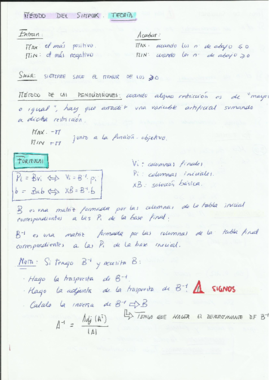 MÉTODO DEL SIMPLEX. TEORÍA
ENTRAN:
ACABAR:
MAX el más positivo
MAX cuando los nº de abajo ≤ 0
MIN el más negativo
MIN cuando los nº de abajo ≥ 0
SALE:
MÉTODO DE LAS PENALIZACIONES: cuando alguna restricción es de "mayor
o igual", hay que añadir una variable artificial sumando
a dicha restricción.
MAX -M
MIN +M
junto a la función objetivo.
MATRICIAL:
Vi: columnas finales
Pi: columnas iniciales.
XB: solución básica
Pi = BVi ⟺ Vi = B⁻¹ · Pi
b = BXB ⟺ XB = B⁻¹ · b
B es una matriz formada por las columnas de la tabla inicial
correspondientes a las Pi de la base final.
B⁻¹ es una matriz formada por las columnas de la tabla final
correspondientes a las Pi de la base inicial.
NOTA: Si tengo B⁻¹ y necesito B:
- Hago la traspuesta de B⁻¹
- Hago la adjunta de la traspuesta de B⁻¹ SIGNOS
- Calculo la inversa de B⁻¹ → B
TENGO QUE HACER EL DETERMINANTE DE B⁻¹
A⁻¹ = Adj (Aᵗ) / |A|